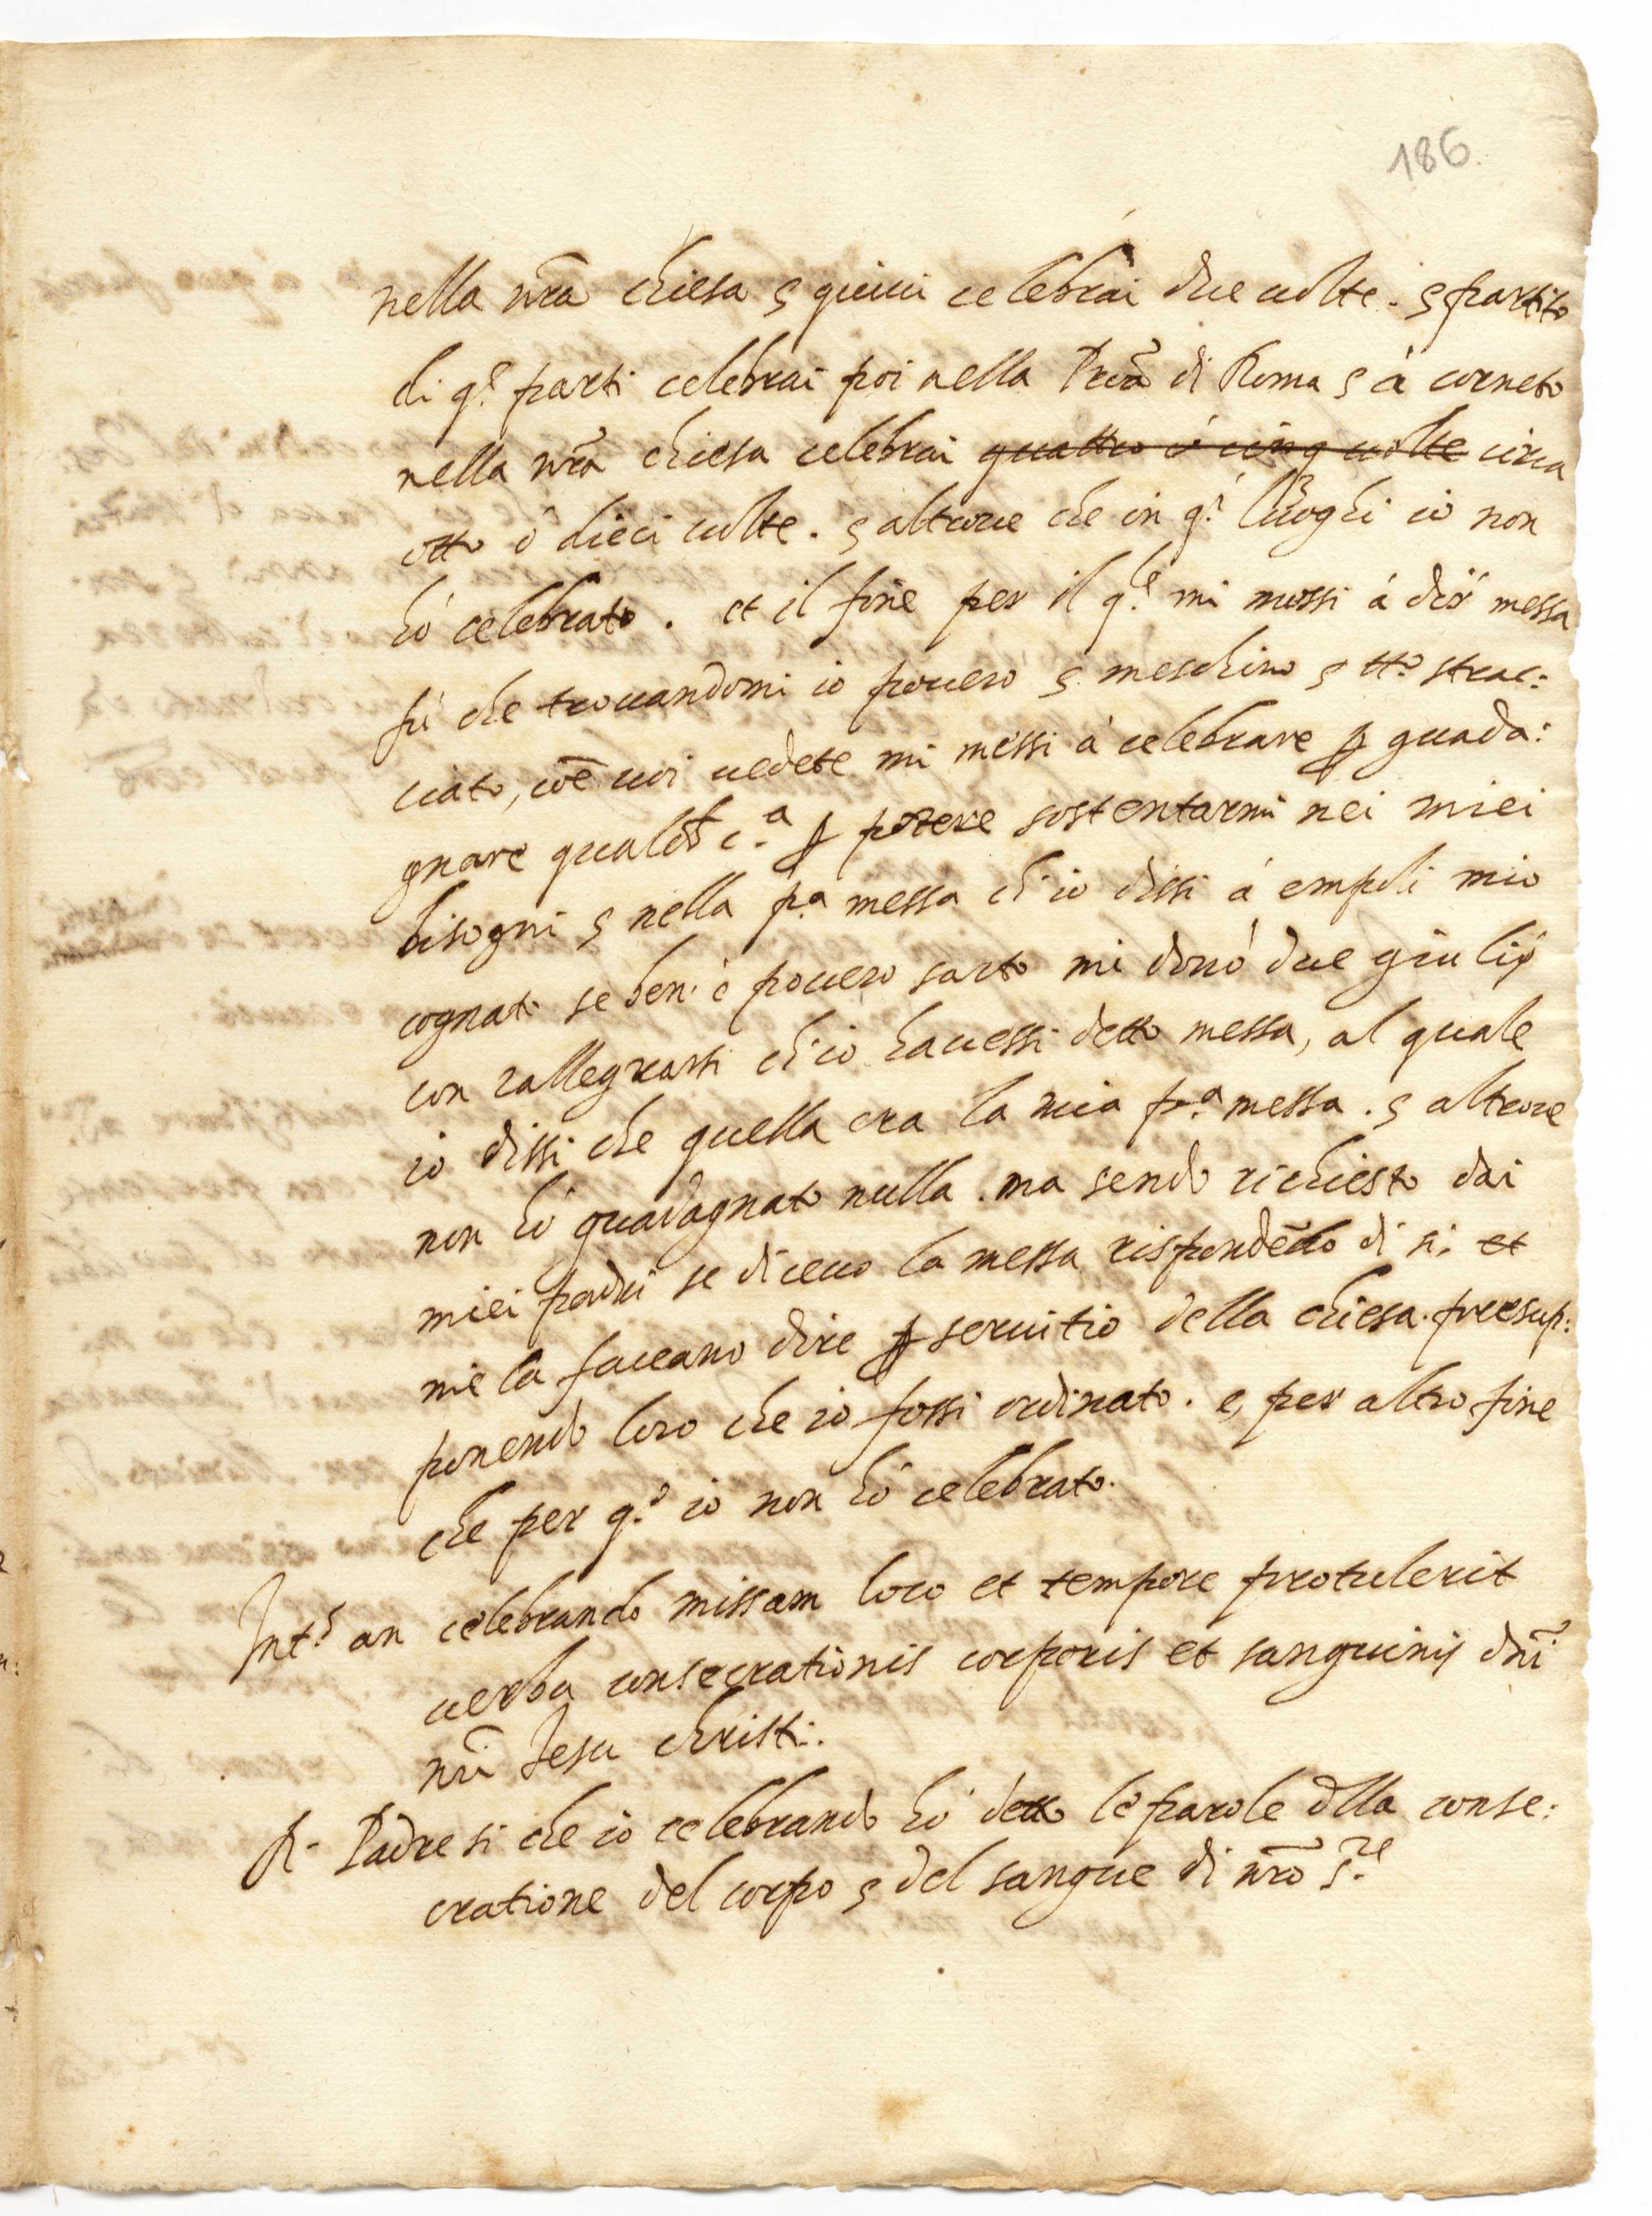 186
nella nrã chiesa e quiui celebrai due uolte. e partito
di q.e parti celebrai poi nella Proã di Roma e à corneto
nella nrã chiesa celebrai quattro ò cinq uolte circa
otto ò dieci uolte. e altroue che in q.i luoghi io non
hò celebrato. et il fine per il q.le mi mossi à dir messa
fù che trouandomi io pouero e meschino e tt.o strac:
ciato, coē uoi uedete mi messi à celebrare p guada:
gnare qualch c.a p potere sostentarmi nei miei
bisogni e nella p.a messa ch'io dissi à empoli mio
cognato se ben' è pouero sarto mi donò due giulij
con rallegrarsi ch'io hauessi detto messa, al quale
io dissi che quella era la mia p.a messa. e altroue
non hò guadagnato nulla. ma sendo richiesto dai
miei padri se diceuo la messa rispondēdo di si, et
me la faceano dire p seruitio della chiesa. presup:
ponendo loro che io fossi ordinato. e per altro fine
che per q.o io non hò celebrato.
Int.s an celebrando missam loco et tempore protulerit
uerba consecrationis corporis et sanguinis dñi
nri Jesu christi.
R. Padre si che io celebrando hò detto le parole dlla conse:
cratione del corpo e del sangue di nrõ S.re